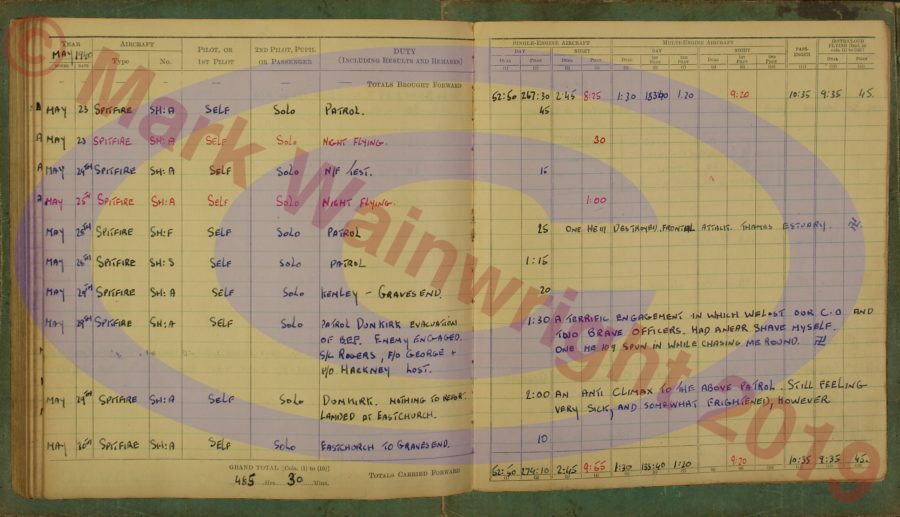 YEAR AIRCRAFT PILOT, OR 2ND PILOT, PUPIL DUTY SINGLE-ENGINE AIRCRAFT MULTI-ENGINE AIRCRAFT
MAY 1940 Type No. 1ST PILOT OR PASSENGER (INCLUDING RESULTS AND REMARKS) DAY NIGHT DAY NIGHT
MONTH DATE DUAL PILOT DUAL PILOT DUAL
TOTALS BROUGHT FORWARD 52:50 267:30 2:45 8:25 1:30 1:20 9:20 10:35 9:35 45.
MAY 23 SPITFIRE SH:A SELF SOLO PATROL. 45
MAY 23 SPITFIRE SH:A SELF SOLO NIGHT FLYING. 30
MAY 24TH SPITFIRE SH:A SELF SOLO N/F TEST. 15
MAY 25TH SPITFIRE SH:A SELF SOLO NIGHT FLYING. 1:00
MAY 25TH SPITFIRE SH:F SELF SOLO PATROL 25 ONE HE 111 DESTROYED. FRONTAL ATTACK. THAMES ESTUARY. 卐
MAY SPITFIRE SH:S SELF SOLO PATROL 1:15
MAY 29TH SPITFIRE SH:A SELF SOLO KENLEY – GRAVESEND. 20
MAY 29TH SPITFIRE SH:A SELF SOLO PATROL DUNKIRK EVACUATION 1:30 A TERRIFIC ENGAGEMENT IN WHICH WE LOST OUR C.O AND
OF BEF. ENEMY ENGAGED. TWO BRAVE OFFICERS. HAD A NEAR SHAVE MYSELF.
S/L ROGERS, F/O GEORGE + ONE HE 109 SPUN IN WHILE CHASING ME ROUND. 卐
P/O HACKNEY LOST.
MAY 29TH SPITFIRE SH:A SELF SOLO DUNKIRK. NOTHING TO REPORT. 2:00 AN ANTI CLIMAX TO THE ABOVE PATROL. STILL FEELING
LANDED AT EASTCHURCH. VERY SICK, AND SOMEWHAT FRIGHTENED, HOWEVER
MAY 30TH SPITFIRE SH:A SELF SOLO EASTCHURCH TO GRAVESEND. 10
GRAND TOTAL [Cols. (1) to (10)] TOTALS CARRIED FORWARD 52:50 274:10 2:45 9:55 1:30 133:40 1:20 9:20 10:35 9:35 45.
485 Hrs. 30 Mins.
© Mark Wainwright 2019